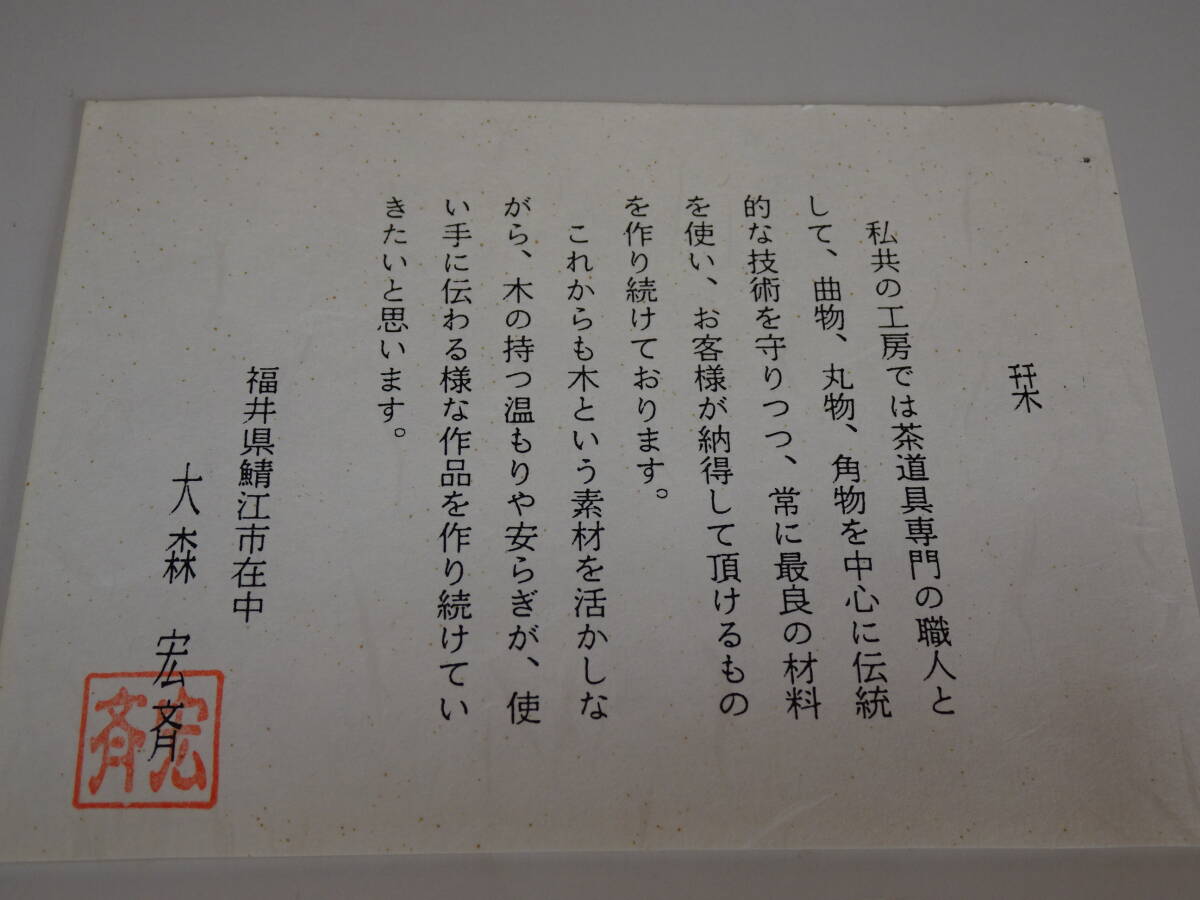 栞
私共の工房では茶道具専門の職人と
して、曲物、丸物、角物を中心に伝統
的な技術を守りつつ、常に最良の材料
を使い、お客様が納得して頂けるもの
を作り続けております。
これからも木という素材を活かしな
がら、木の持つ温もりや安らぎが、使
い手に伝わる様な作品を作り続けてい
きたいと思います。
福井県鯖江市在中
大森 宏斉
宏斉